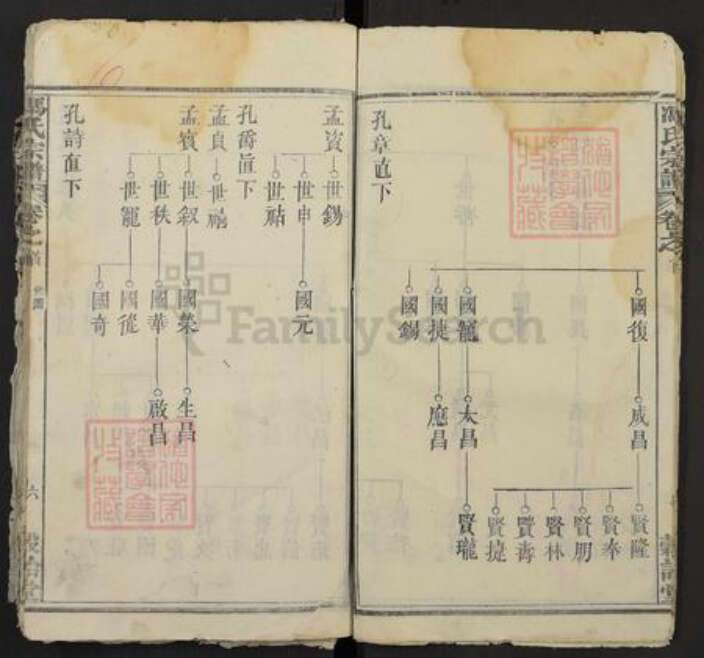 氏宗譜
卷之首
孔章直下
國復
國龍
國捷
國錫
成昌
大昌
應昌
賢隆
賢奉
賢朋
賢林
賢壽
賢捷
賢瓏
孟資
世錫
世申
世祐
國元
孔爵直下
孟貞
孟賓
世叙
世秩
世寵
國榮
國華
國從
國奇
生昌
啟昌
孔詩直下
氏宗譜
六
FamilySearch